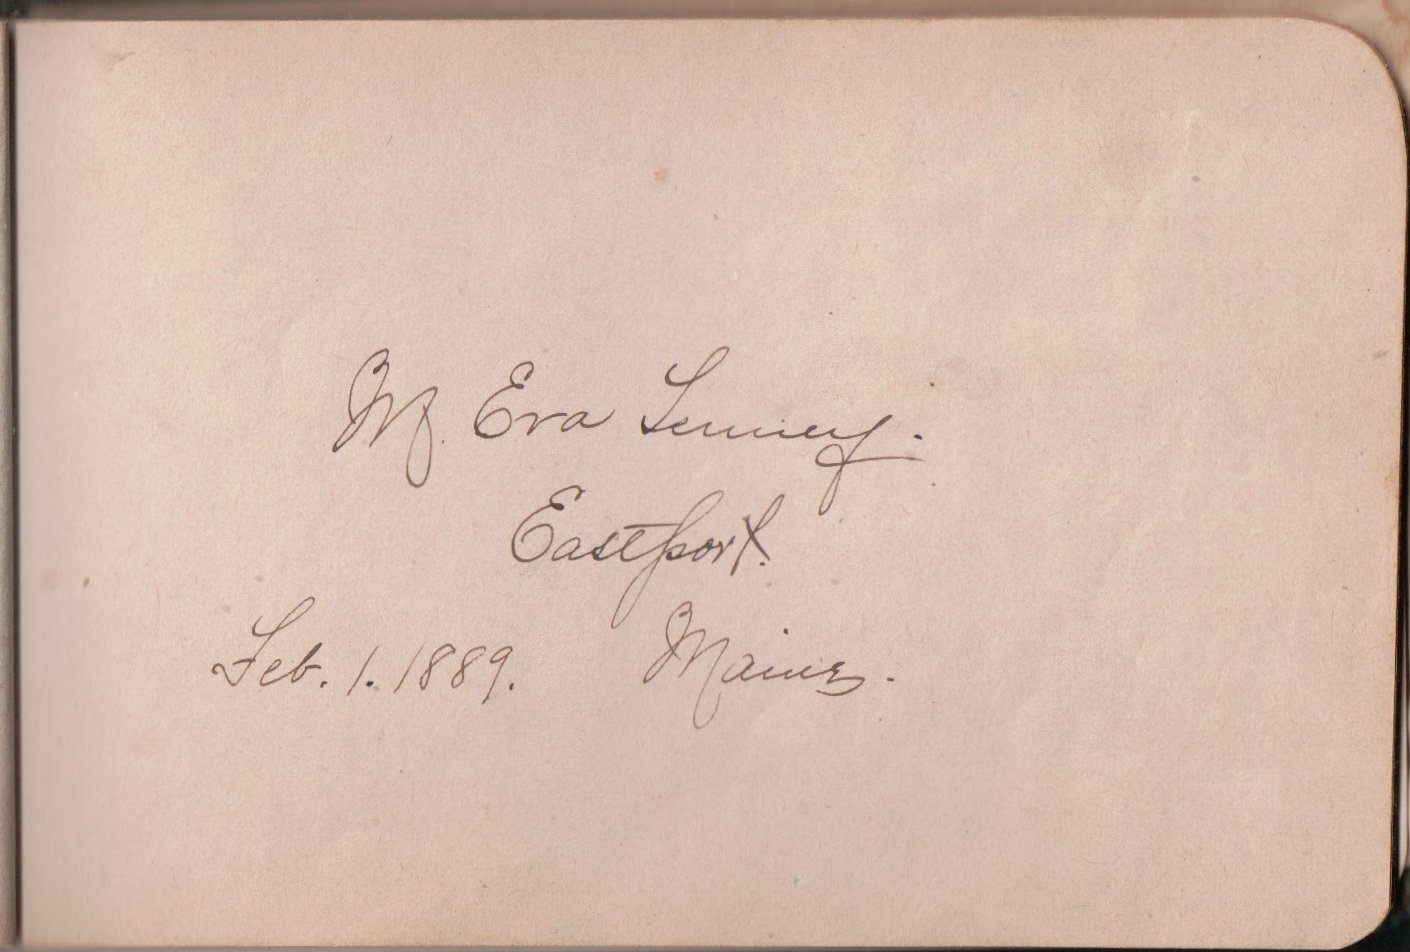 M. Eva Tenney.
Eastport.
Feb. 1. 1889. Maine.